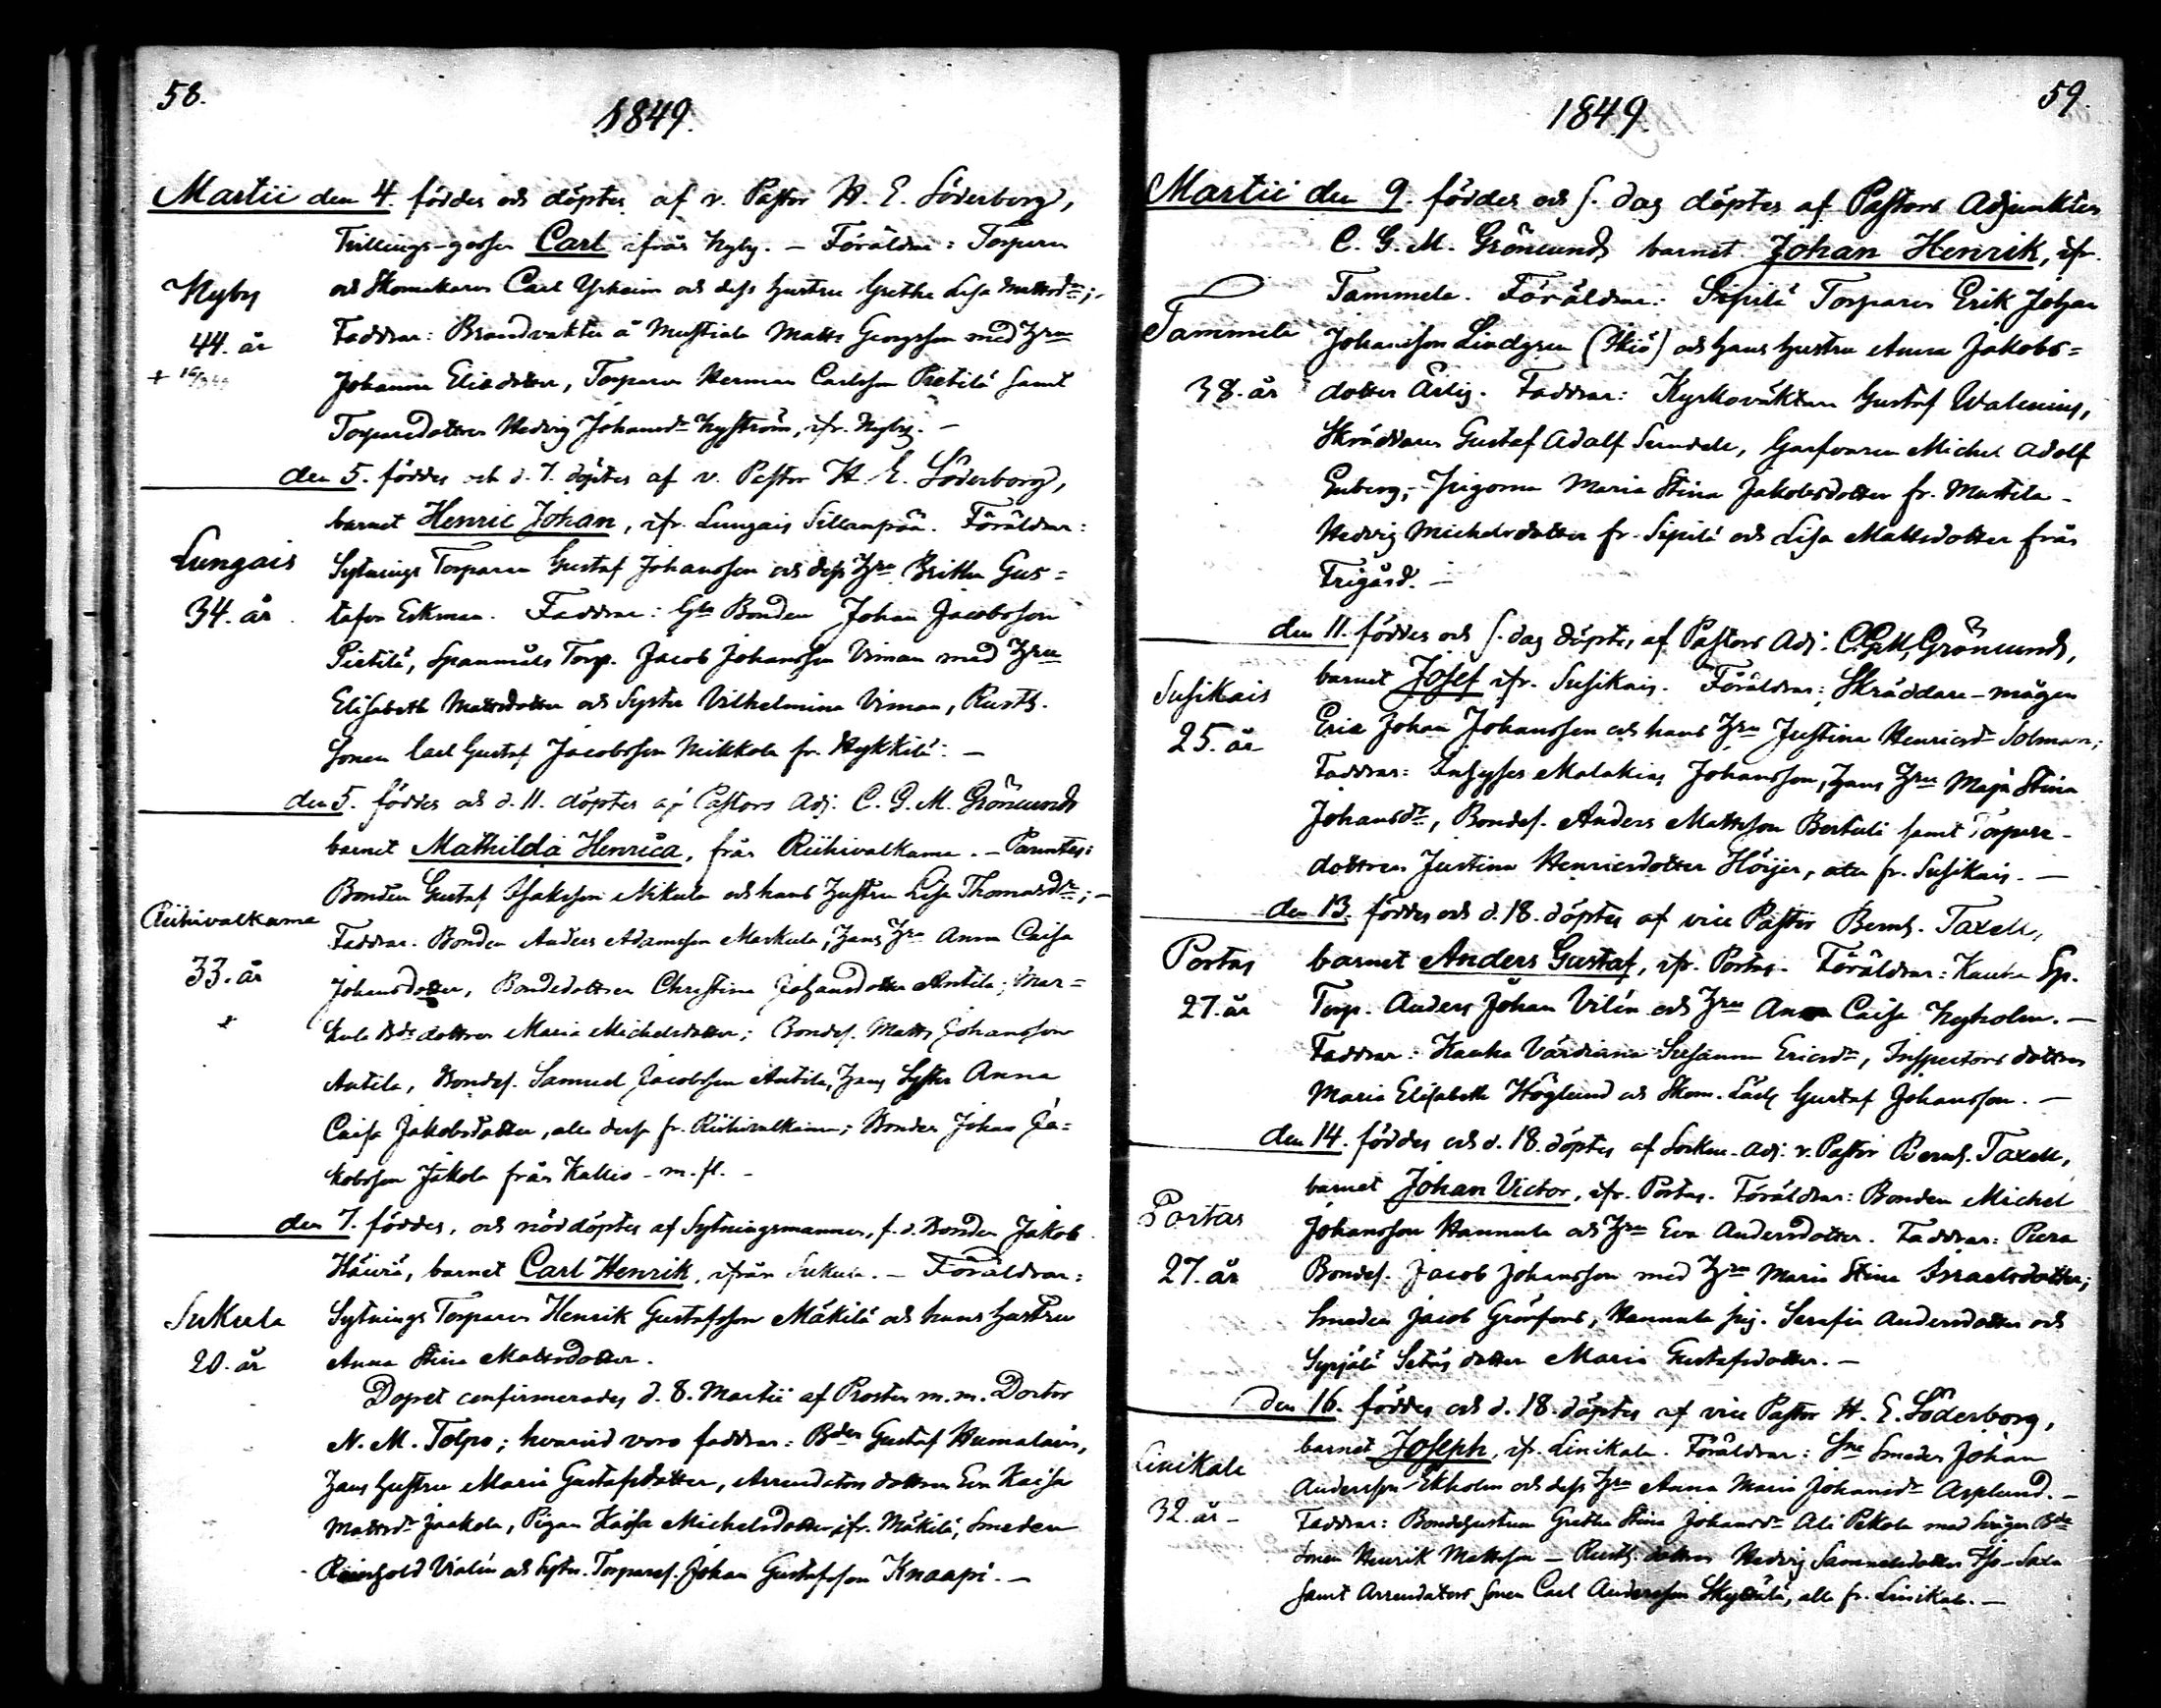 58.
1849.
Martii den 4. föddes och döptes af v. Pastor H. E. Söderborg,
Trillings-gossen Carl ifrån Nyby. – Föräldrar: Torparen
och Skomakaren Carl och dess hustru Grethe Lisa Mattsdr;
Nyby
44. år
Faddrar: Brandvakten å Mustiala Matts Georgsson med Hru
Johanna Eliedotter, Torparen Herman Carlsson Pietilä samt
Torparedottren Hedvig Johansdr Nyström, ifr. Nyby. –
den 5. föddes och d. 7. döptes af v. Pastor H. E. Söderborg,
barnet Henric Johan, ifr. Lungais Sillanpää. Föräldrar:
Lungais
34. år
Sytnings Torparen Gustaf Johansson och dess Hru Britha Gus=
tafva Eckman. Faddrar: Gla Bonden Johan Jacobsson
Pietilä, Spannmåls Torp. Jacob Johansson Viman med Hru
Elisabeth Mattsdotter och Syster Vilhelmina Viman, Rusth.
Sonen Carl Gustaf Jacobsson Mikkola fr. Hykkilä: –
den 5. föddes och d. 11. döptes af Pastors Adj. C. G. M. Grönlund
barnet Mathilda Henrica, från Riihivalkama. – Parentes:
Bonden Gustaf Isaksson Nikula och hans hustru Lisa Thomasdr; –
Riihivalkama
33. år
Faddrar. Bonden Anders Adamsson Markula, Hans Hru Anna Caisa
Johansdotter, Bondedottren Christina Johansdotter Antila; Mar=
kula Bde dottren Maria Michelsdotter; Bondes. Matts Johansson
Antila, Bondes. Samuel Jacobsson Antila, Hans Syster Anna
Caisa Jakobsdotter, alla dessa fr. Riihivalkama; Bonden Johan Ja=
kobsson Jakola från Kallio – m. fl. –
den 7. föddes, och nöddöptes af Sytningsmannen, f. d. Bonden Jakob
barnet Carl Henrik, ifrån Sukula. – Föräldrar:
Sukula
20. år
Sytnings Torparen Henrik Gustafsson Mäkilä och hans hustru
Anna Stina Mattsdotter.
Dopet confirmerades d. 8. Martii af Prosten m. m. Doctor
N. M. Tolpo; hvarvid voro faddrar: Bden Gustaf Humalain,
Hans hustru Maria Gustafsdotter, Arrendators dottren Eva Kaisa
Mattsdr Jaakola, Pigan Kaisa Michelsdotter ifr. Mäkilä, Smeden
Reinhold Vialén och Sytn. Torpares. Johan Gustafsson Knaapi. –
59.
1849.
Martii den 9. föddes och s. dag döptes af Pastors Adjunkten
C. G. M. Grönlund barnet Johan Henrik, ifr.
Tammela. Föräldrar: Sipilä Torparen Erik Johan
Tammela
38. år
Johansson Lindgren (Skiö) och hans hustru Anna Jakobs=
dotter Ärlig. Faddrar: Kyrkoväktaren Gustaf Walenius,
Skräddaren Gustaf Adolf Sundell, Garfvaren Michel Adolf
Enberg, Pigorna Maria Stina Jakobsdotter fr. Mustila –
Hedvig Michelsdotter fr. Sipilä och Lisa Mattsdotter från
Frigård. –
den 11. föddes och s. dag döptes af Pastors Adj. C.G.M. Grönlund,
barnet Josef ifr. Susikais. Föräldrar: Skräddare-mågen
Susikais
25. år
Eric Johan Johansson och hans Hru Justina Henricsdr Solman;
Faddrar: Inhyses Malakias Johansson, Hans Hru Maja Stina
Johansdr, Bondes. Anders Mattsson Bertuli samt Torpare-
dottren Justina Henricsdotter Höijer, alla fr. Susikais. –
den 13. föddes och d. 18. döptes af vice Pastor Bernh. Taxell,
Portas
27. år
barnet Anders Gustaf, ifr. Portas. Föräldrar: Kauha Sp.
Torp. Anders Johan Vilén och Hru Anna Caisa Nyholm. –
Faddrar: Kauha Värdinna Susanna Ericsdr, Inspectors dottren
Maria Elisabeth Höglund och Skom. Lärl. Gustaf Johansson. –
den 14. föddes och d. 18. döptes af Socken-Adj. v. Pastor Bernh. Taxell,
barnet Johan Victor, ifr. Portas. Föräldrar: Bonden Michel
Portas
27. år
Johansson Hannula och Hru Eva Andersdotter. Faddrar: Piera
Bondes. Jacob Johansson med Hru Maria Stina Israelsdotter;
Smeden Jacob Grönfors, Hannula pig. Serafia Andersdotter och
Syrjälä dotter Maria Gustafsdotter. –
den 16. föddes och d. 18. döptes af vice Pastor H. E. Söderborg,
barnet Joseph, ifr. Linikala. Föräldrar: Sne Smeden Johan
Linikala
32. år –
Andersson Ekholm och dess Hru Anna Maria Johansdr Asplund. –
Faddrar: Bondehustrun Gretha Stina Johansdr Ali Pekola med Svåger Bde
Sonen Henrik Mattsson – Rusth. dottren Hedvig Samuelsdotter Iso-Saxa
samt Arrendators sonen Carl Andersson Skyttälä, alla fr. Linikala. –